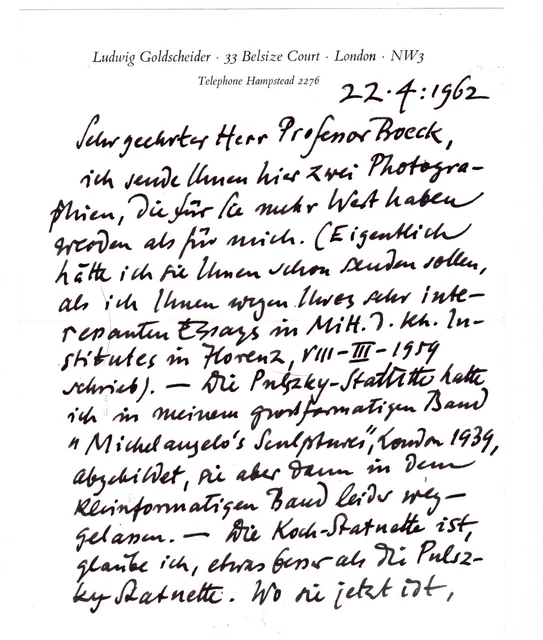 Ludwig Goldscheider · 33 Belsize Court · London · NW3
Telephone Hampstead 2276
22.4.:1962
Sehr geehrter Herr Professor Boeck,
ich sende Ihnen hier zwei Photogra-
phien, die für Sie mehr Wert haben
werden als für mich. (Eigentlich
hätte ich sie Ihnen schon senden sollen,
als ich Ihnen wegen Ihres sehr inte-
ressanten Essays in Mitt. d. kh. In-
stitutes in Florenz, VIII-III-1959
schrieb). — Die Pulszky-Statuette hatte
ich in meinem grossformatigen Band
"Michelangelo's Sculptures", London 1939,
abgebildet, sie aber dann in dem
kleinformatigen Band leider weg-
gelassen. — Die Koch-Statuette ist,
glaube ich, etwas besser als die Pulsz-
ky Statuette. Wo sie jetzt ist,